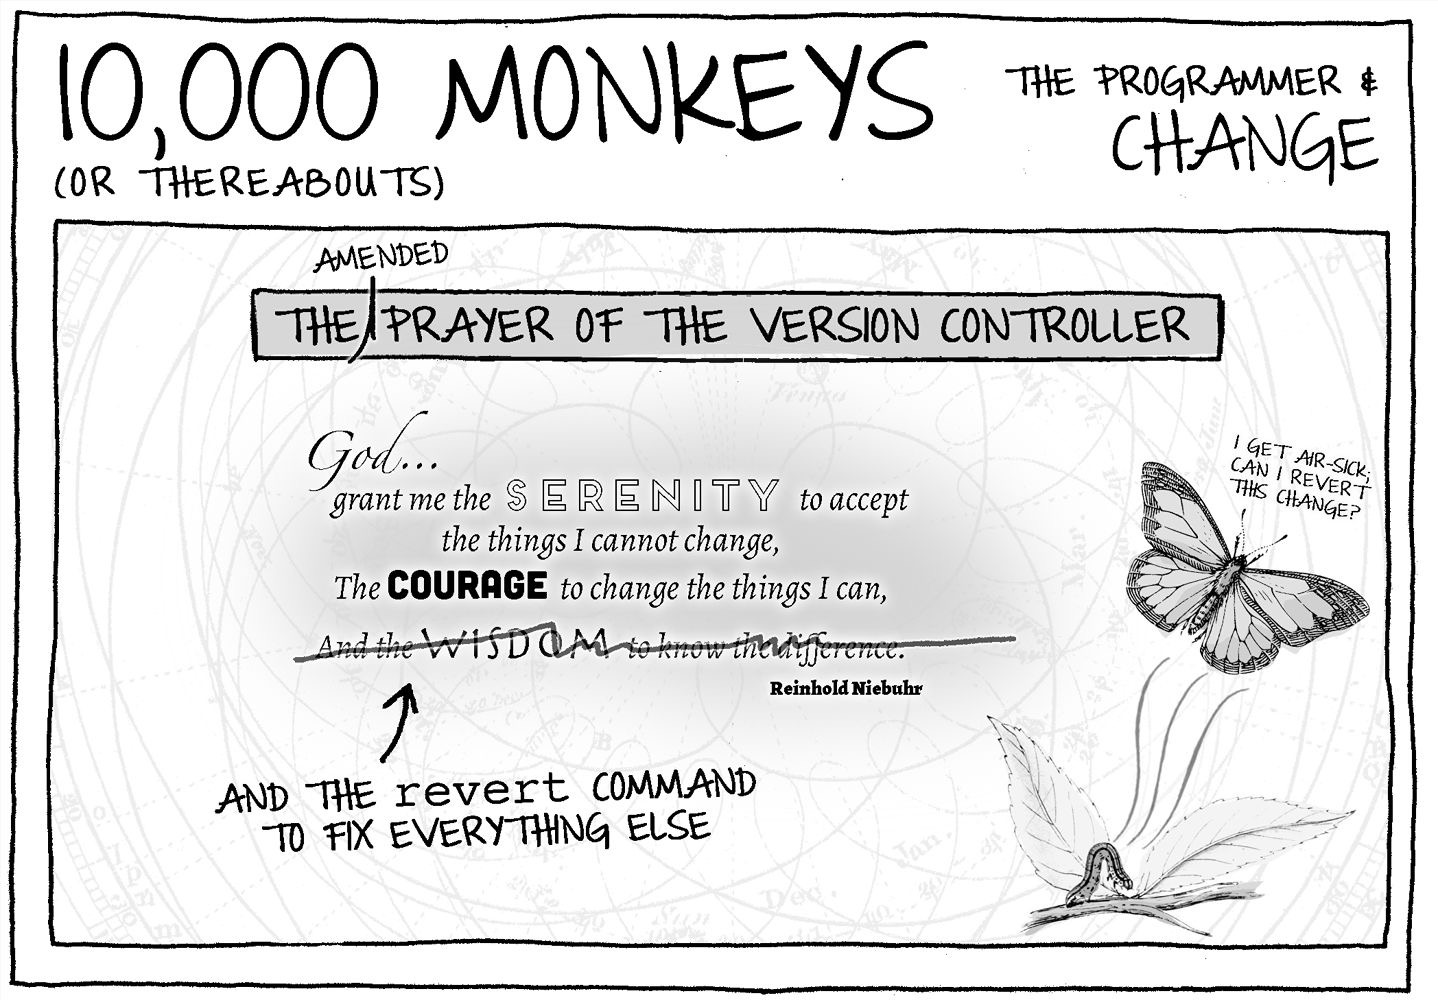 10,000 MONKEYS
(OR THEREABOUTS)
THE PROGRAMMER &
CHANGE
AMENDED
THE PRAYER OF THE VERSION CONTROLLER
God...
grant me the SERENITY to accept
the things I cannot change,
The COURAGE to change the things I can,
And the WISDOM to know the difference.
Reinhold Niebuhr
AND THE revert COMMAND
TO FIX EVERYTHING ELSE
I GET AIR-SICK;
CAN I REVERT
THIS CHANGE?